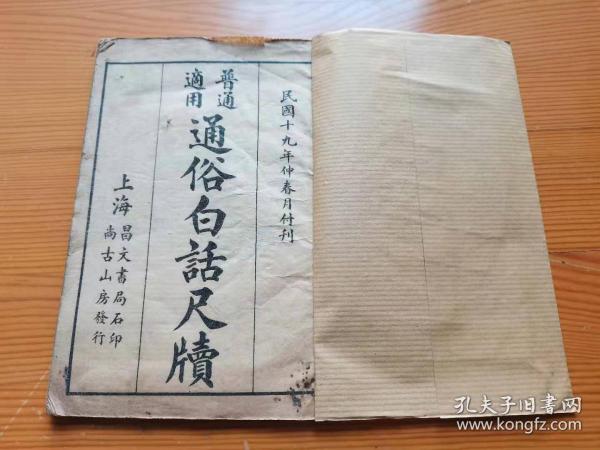 民國十九年仲春月付刊
普通
適用
通俗白話尺牘
上海
昌文書局石印
尚古山房發行
孔夫子旧書网
www.kongfz.com